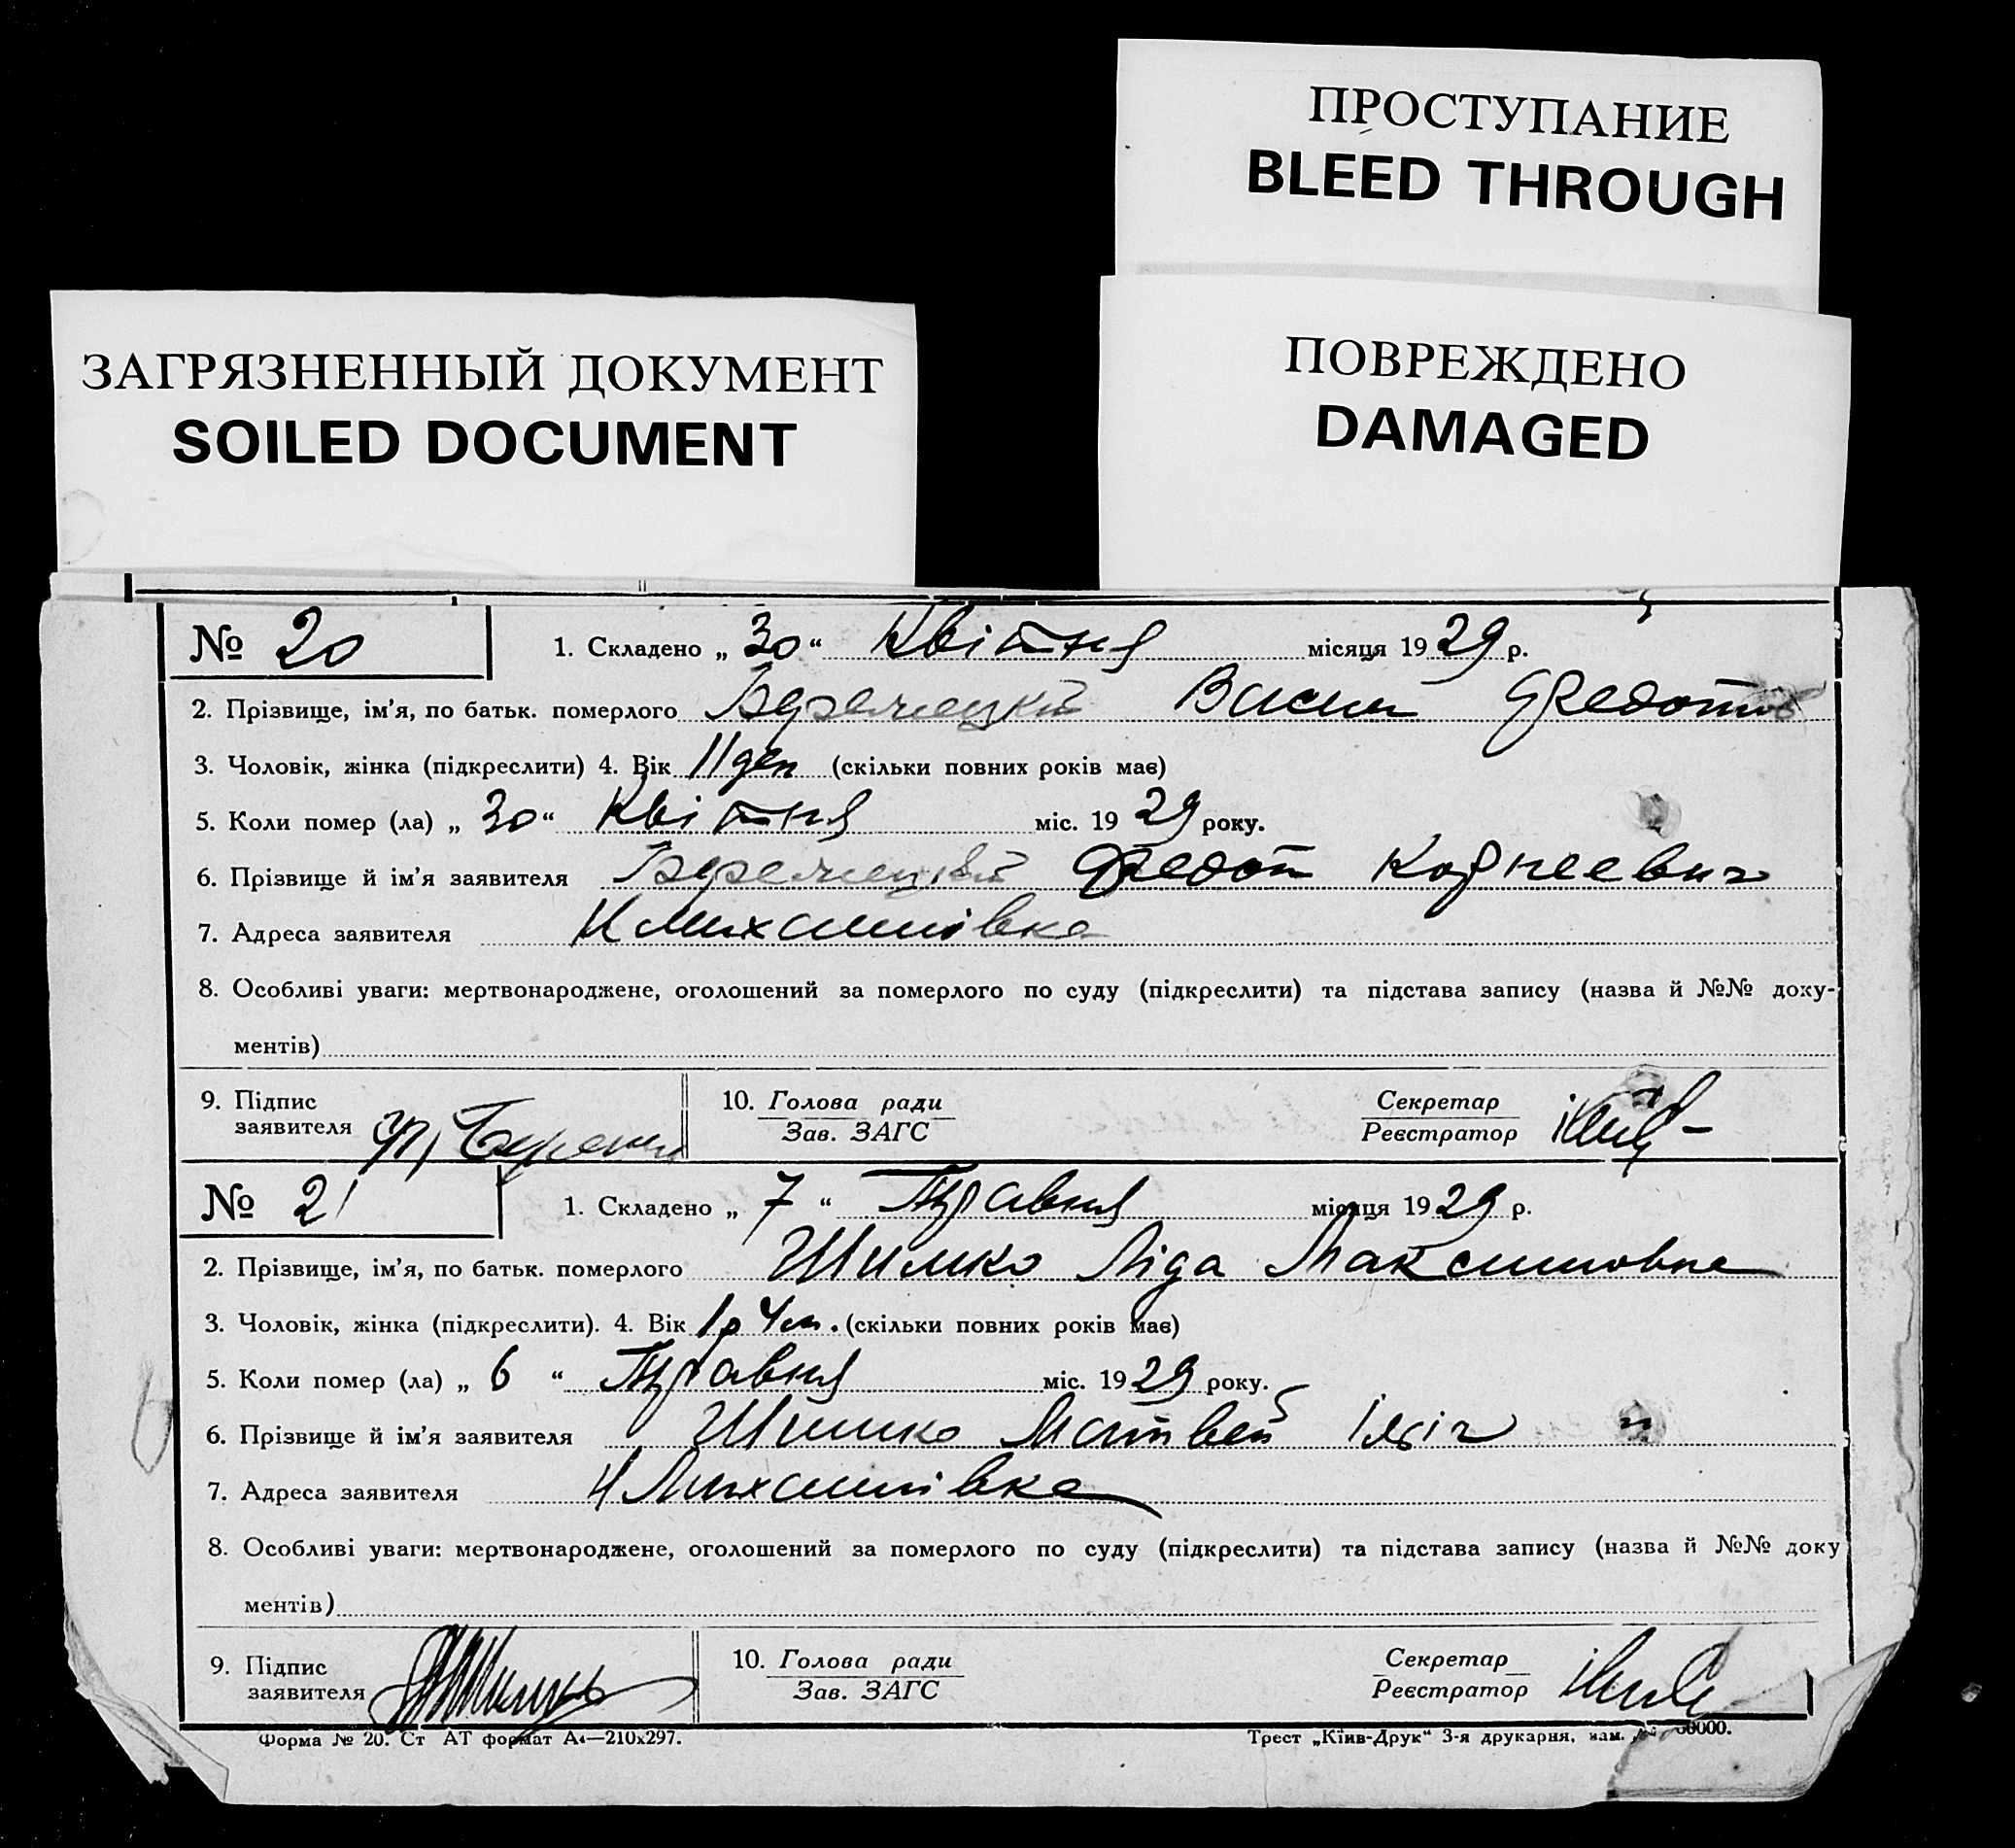 ПРОСТУПАНИЕ
BLEED THROUGH
ЗАГРЯЗНЕННЫЙ ДОКУМЕНТ
SOILED DOCUMENT
ПОВРЕЖДЕНО
DAMAGED
№ 20 1. Складено „ 30 “ Квітня місяця 1929 р.
2. Прізвище, ім’я, по батьк. померлого Василь Федотов
3. Чоловік, жінка (підкреслити) 4. Вік 11 ден (скільки повних років має)
5. Коли помер (ла) „ 30 “ Квітня міс. 19 29 року.
6. Прізвище й ім’я заявителя Федот Корнеевич
7. Адреса заявителя Н Михайлівка
8. Особливі уваги: мертвонароджене, оголошений за померлого по суду (підкреслити) та підстава запису (назва й №№ доку-
ментів)
9. Підпис заявителя 10. Голова ради Секретар
Зав. ЗАГС Реєстратор
№ 21 1. Складено „ 7 “ Травня місяця 1929 р.
2. Прізвище, ім’я, по батьк. померлого Шимко Ліда Максимовна
3. Чоловік, жінка (підкреслити). 4. Вік 1 р 4 м. (скільки повних років має)
5. Коли помер (ла) „ 6 “ Травня міс. 1929 року.
6. Прізвище й ім’я заявителя Шимко Матвей Ілліч
7. Адреса заявителя Н Михайлівка
8. Особливі уваги: мертвонароджене, оголошений за померлого по суду (підкреслити) та підстава запису (назва й №№ доку
ментів)
9. Підпис заявителя 10. Голова ради Секретар
Зав. ЗАГС Реєстратор
Форма № 20. Ст АТ формат А4—210x297. Трест „Київ-Друк“ 3-я друкарня, зам.